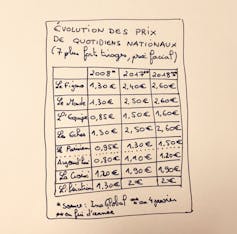 ÉVOLUTION DES PRIX
DE QUOTIDIENS NATIONAUX
(7 plus fort tirages, prix facial)
2008* 2017** 2018**
Le Figaro 1,30€ 2,40€ 2,60€
Le Monde 1,30€ 2,50€ 2,60€
L'Equipe 0,85€ 1,50€ 1,60€
Les Echos 1,30€ 2,50€ 2,60€
Le Parisien 0,95€ 1,30€ 1,50€
Aujourd'hui 0,80€ 1,10€ 1,20€
La Croix 1,20€ 1,90€ 1,90€
Libération 1,30€ 2€ 2€
* Source: Ina Global ** au 4 janvier